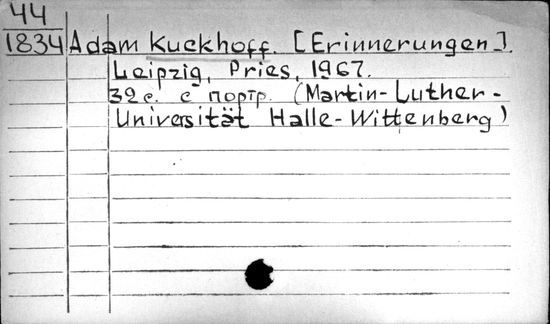 44
1834 Adam Kuckhoff. [Erinnerungen].
Leipzig, Pries, 1967.
32 с. с портр. (Martin-Luther-
Universität Halle-Wittenberg)